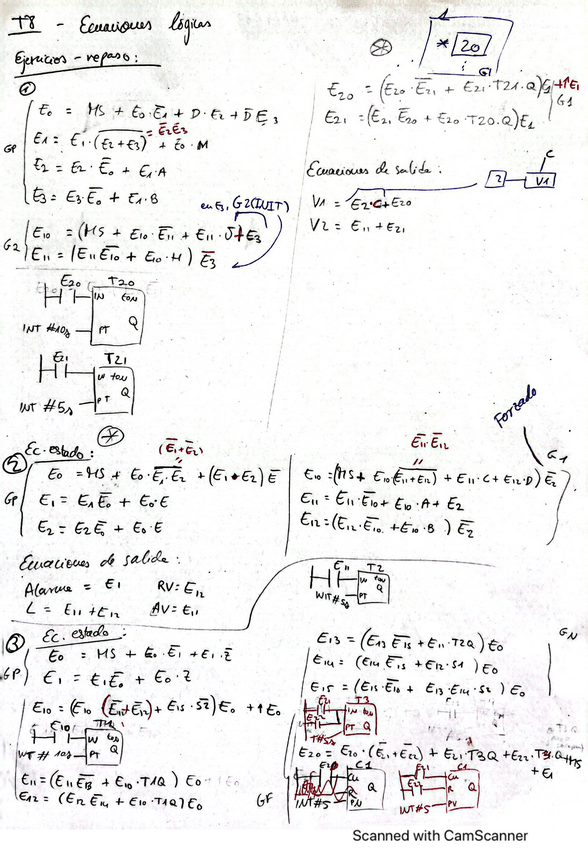 T8 - Ecuaciones lógicas
Ejercicios - repaso:
①
GP
E0 = MS + E0·E̅1 + D·E2 + D̅ E3
E1 = E1·(E2+E3)‾ + E0·M
= E̅2 E̅3
E2 = E2·E̅0 + E1·A
E3 = E3·E̅0 + E1·B
en E3, G2(INIT)
G2
E10 = (MS + E10·E̅11 + E11·J̅ + E3
E11 = (E11 E̅10 + E10·M) E̅3
E20 T20
IN TON
INT #10s PT Q
E21 T21
IN TON
INT #5s PT Q
* 20
G1
E20 = (E20·E̅21 + E21·T21·Q) +↑E1
G1
E21 = (E21 E̅20 + E20·T20·Q)E1
Ecuaciones de salida:
C
2 V1
V1 = E2·C+E20
V2 = E11+E21
② Ec. estado:
(E̅1+E̅2)
GP
E0 = MS + E0·E̅1·E̅2 + (E1+E2) E̅
E1 = E1 E̅0 + E0·E
E2 = E2 E̅0 + E0·E
Ecuaciones de salida:
Alarma = E1 RV = E12
L = E11 + E12 AV = E11
Forzado
E̅11·E̅12
G1
E10 = (MS + E10 (E11+E12)‾ + E11·C + E12·D) E̅2
E11 = E11·E̅10 + E10·A + E2
E12 = (E12·E̅10 + E10·B) E̅2
E11 T2
IN TON
INT #5s PT Q
③ Ec. estado:
GP
E0 = MS + E0·E̅1 + E1·Z̅
E1 = E1E̅0 + E0·Z
E10 = (E10 (E̅11+E̅12) + E15·S2̅) E0 + ↑E0
E10 T1
TON
INT # 10s PT Q
E11 = (E11 E̅13 + E10·T1Q) E0
E12 = (E12 E̅14 + E10·T1Q) E0
GN
E13 = (E13 E̅15 + E11·T2Q) E0
E14 = (E14 E̅15 + E12·S1) E0
E15 = (E15·E̅10 + E13·E14·S2) E0
E21 T3
IN TON
PT Q
E20 = E20·(E̅21+E̅22) + E21·T3Q + E22·T3·Q + MS
+ E1
GF
C1
CU
R Q
INT #5 PV
E21 C1
CU
R Q
INT #5 PV
Scanned with CamScanner